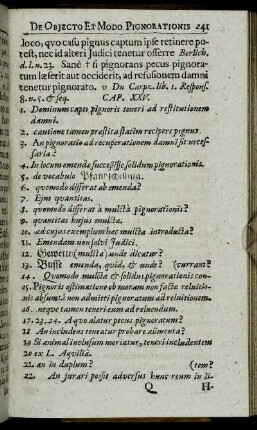 DE OBJECTO ET MODO PIGNORATIONIS 241
loco, qvo casu pignus captum ipse retinere po-
test, nec id alteri Judici tenetur offerre Berlich.
d. l. n. 23. Sanè † si pignorans pecus pignora-
tum læserit aut occiderit, ad refusionem damni
tenetur pignorato. v Dn Carpz. lib. 1. Respons.
8. n. 5. & seq. CAP. XXV.
1. Dominum capti pignoris teneri ad restitutionem
damni.
2. cautione tamen præstitâ statim recipere pignus
3. An pignoratio ad recuperationem damni sit neces-
saria?
4. In locum emendæ successisse solidum pignorationis.
5. de vocabulo Pfandschilling.
6. qvomodo differat ab emenda?
7. Ejus qvantitas.
8. qvomodo differat à mulctâ pignorationis?
9. qvantitas hujus mulctæ.
10. ad cujus exemplum hæc mulcta introducta?
11. Emendam non solvi Judici.
12. Gewette (mulcta) unde dicatur?
13. Busse emenda, qvid, & unde? (curram?
14. Qvomodo mulcta & solidus pignorationis con-
15. Pignoris æstimatione ob moram non factæ reluitio-
nis absumtâ non admitti pignoratum ad reluitionem.
16. neqve tamen teneri eum ad reluendum.
17. 23. 24. A qvo alatur pecus pignoratum?
18 An includens teneatur probare alimenta?
19 Si animal inclusum moriatur, teneri includentem
20 ex L. Aqviliâ.
21. an in duplum? (tem?
22. An jurari possit adversus hunc reum in li-
Q H-